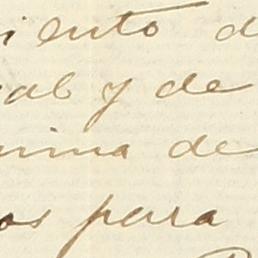 iento d
al y de
nima de
os para